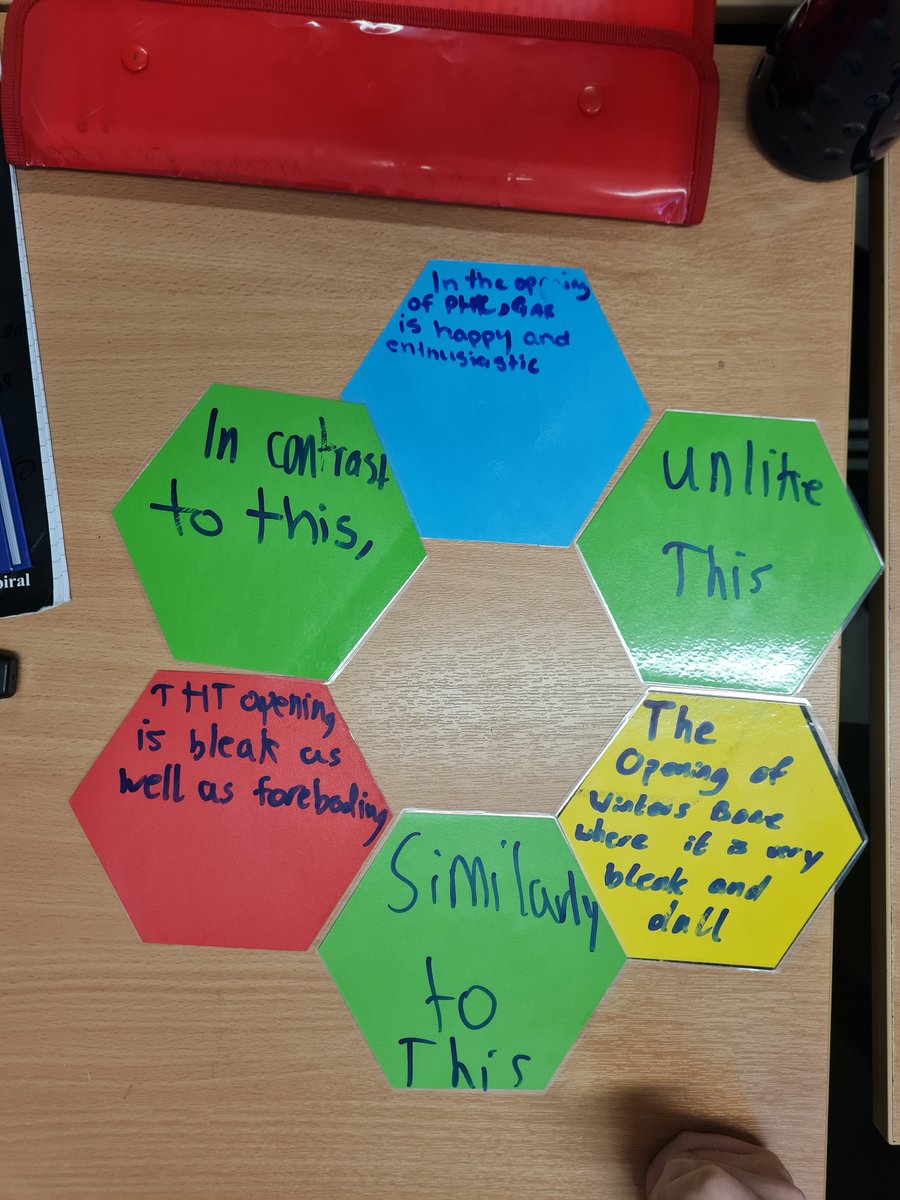 In the opening
of PHR, GAR
is happy and
enthusiastic
In contrast
to this,
unlike
This
THT opening
is bleak as
well as foreboding
The
Opening of
Winters Bone
where it is very
bleak and
dull
Similarly
to
This
piral